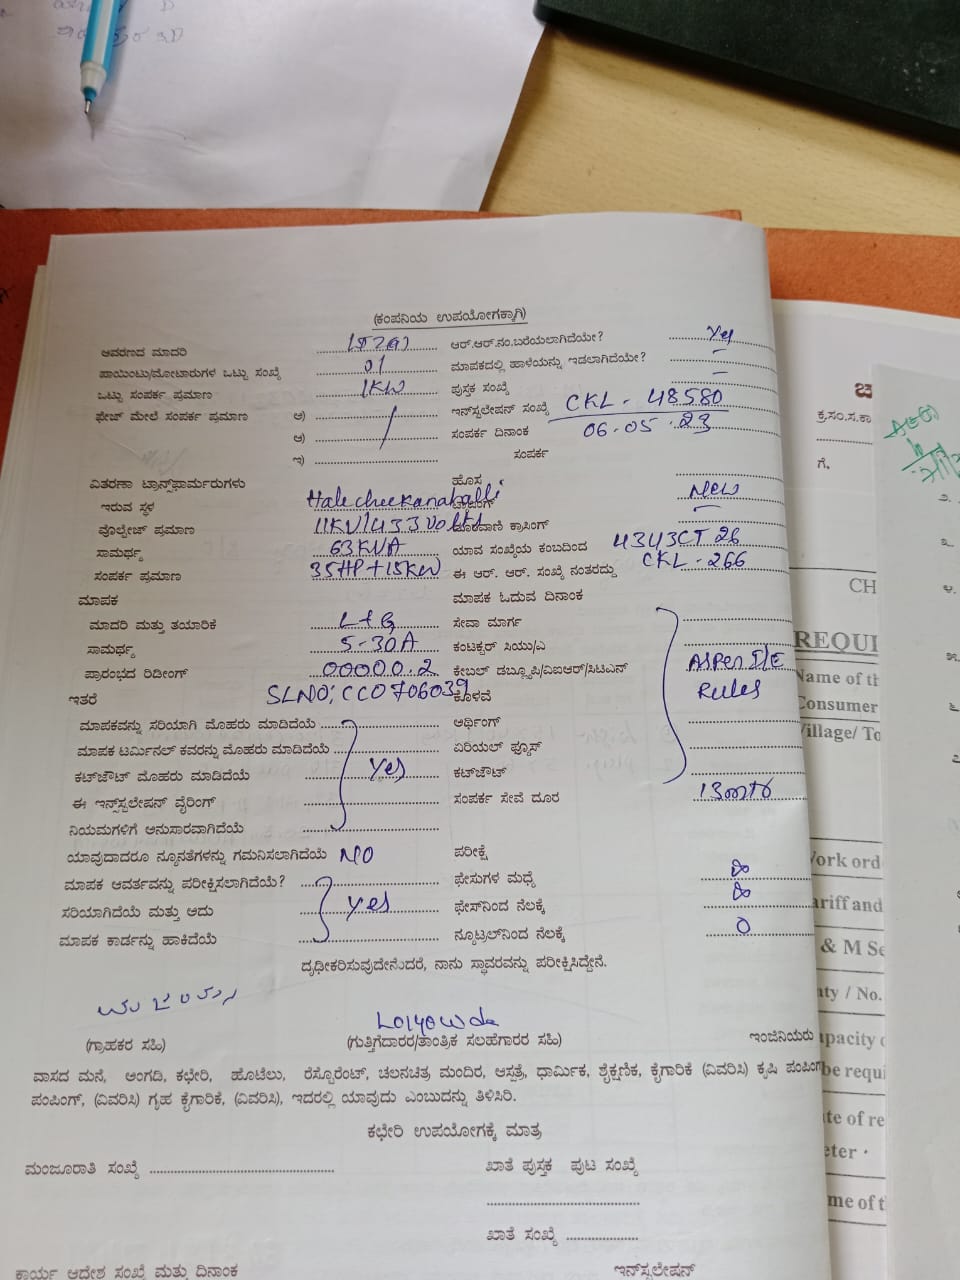 (ಕಂಪನಿಯ ಉಪಯೋಗಕ್ಕಾಗಿ)
ಆವರಣದ ಮಾದರಿ ಆರ್.ಆರ್.ನಂ.ಬರೆಯಲಾಗಿದೆಯೇ? Yes
ಪಾಯಿಂಟು/ಮೋಟಾರುಗಳ ಒಟ್ಟು ಸಂಖ್ಯೆ 01 ಮಾಪಕದಲ್ಲಿ ಹಾಳೆಯನ್ನು ಇಡಲಾಗಿದೆಯೇ? –
ಒಟ್ಟು ಸಂಪರ್ಕ ಪ್ರಮಾಣ 1KW ಪುಸ್ತಕ ಸಂಖ್ಯೆ –
ಫೇಜ್ ಮೇಲೆ ಸಂಪರ್ಕ ಪ್ರಮಾಣ ಅ) ಇನ್‌ಸ್ಟಲೇಷನ್ ಸಂಖ್ಯೆ CKL - 48580
ಆ) ಸಂಪರ್ಕ ದಿನಾಂಕ 06.05.23
ಇ) ಸಂಪರ್ಕ
ವಿತರಣಾ ಟ್ರಾನ್ಸ್‌ಫಾರ್ಮರುಗಳು ಹೊಸ
ಇರುವ ಸ್ಥಳ Halecheekanahalli New
ವೊಲ್ಟೇಜ್ ಪ್ರಮಾಣ 11KV/433Volts ದೂರವಾಣಿ ಕ್ರಾಸಿಂಗ್ –
ಸಾಮರ್ಥ್ಯ 63KVA ಯಾವ ಸಂಖ್ಯೆಯ ಕಂಬದಿಂದ 4343CT26
ಸಂಪರ್ಕ ಪ್ರಮಾಣ 35HP+15KW ಈ ಆರ್. ಆರ್. ಸಂಖ್ಯೆ ನಂತರದ್ದು CKL-266
ಮಾಪಕ ಮಾಪಕ ಓದುವ ದಿನಾಂಕ
ಮಾದರಿ ಮತ್ತು ತಯಾರಿಕೆ L+G ಸೇವಾ ಮಾರ್ಗ
ಸಾಮರ್ಥ್ಯ 5-30A ಕಂಟಕ್ಟರ್ ಸಿಯು/ಎ
ಪ್ರಾರಂಭದ ರಿಡೀಂಗ್ 00000.2 ಕೇಬಲ್ ಡಬ್ಲ್ಯೂಪಿ/ವಿಐಆರ್/ಸಿಟಿಎನ್ AsPer I/E
ಇತರೆ SLNO; CC0706039 ಕೊಳವೆ Rules
ಮಾಪಕವನ್ನು ಸರಿಯಾಗಿ ಮೊಹರು ಮಾಡಿದೆಯೆ ಅರ್ಥಿಂಗ್
ಮಾಪಕ ಟರ್ಮಿನಲ್ ಕವರನ್ನು ಮೊಹರು ಮಾಡಿದೆಯೆ ಏರಿಯಲ್ ಫ್ಯೂಸ್
ಕಟ್‌ಔಟ್ ಮೊಹರು ಮಾಡಿದೆಯೆ Yes ಕಟ್‌ಔಟ್
ಈ ಇನ್‌ಸ್ಟಲೇಷನ್ ವೈರಿಂಗ್ ಸಂಪರ್ಕ ಸೇವೆ ದೂರ
ನಿಯಮಗಳಿಗೆ ಅನುಸಾರವಾಗಿದೆಯೆ
ಯಾವುದಾದರೂ ನ್ಯೂನತೆಗಳನ್ನು ಗಮನಿಸಲಾಗಿದೆಯೆ NO ಪರೀಕ್ಷೆ
ಮಾಪಕ ಆವರ್ತವನ್ನು ಪರೀಕ್ಷಿಸಲಾಗಿದೆಯೆ? ಫೇಸುಗಳ ಮಧ್ಯೆ
ಸರಿಯಾಗಿದೆಯೆ ಮತ್ತು ಅದು Yes ಫೇಸ್‌ನಿಂದ ನೆಲಕ್ಕೆ
ಮಾಪಕ ಕಾರ್ಡನ್ನು ಹಾಕಿದೆಯೆ ನ್ಯೂಟ್ರಲ್‌ನಿಂದ ನೆಲಕ್ಕೆ 0
ದೃಢೀಕರಿಸುವುದೇನೆಂದರೆ, ನಾನು ಸ್ಥಾವರವನ್ನು ಪರೀಕ್ಷಿಸಿದ್ದೇನೆ.
(ಗ್ರಾಹಕರ ಸಹಿ) (ಗುತ್ತಿಗೆದಾರರ/ತಾಂತ್ರಿಕ ಸಲಹೆಗಾರರ ಸಹಿ) ಇಂಜಿನಿಯರು
ವಾಸದ ಮನೆ, ಅಂಗಡಿ, ಕಛೇರಿ, ಹೊಟೆಲು, ರೆಸ್ಟೋರೆಂಟ್, ಚಲನಚಿತ್ರ ಮಂದಿರ, ಆಸ್ಪತ್ರೆ, ಧಾರ್ಮಿಕ, ಶೈಕ್ಷಣಿಕ, ಕೈಗಾರಿಕೆ (ವಿವರಿಸಿ) ಕೃಷಿ ಪಂಪಿಂಗ್
ಪಂಪಿಂಗ್, (ವಿವರಿಸಿ) ಗೃಹ ಕೈಗಾರಿಕೆ, (ವಿವರಿಸಿ), ಇದರಲ್ಲಿ ಯಾವುದು ಎಂಬುದನ್ನು ತಿಳಿಸಿರಿ.
ಕಛೇರಿ ಉಪಯೋಗಕ್ಕೆ ಮಾತ್ರ
ಮಂಜೂರಾತಿ ಸಂಖ್ಯೆ ಖಾತೆ ಪುಸ್ತಕ ಪುಟ ಸಂಖ್ಯೆ
ಖಾತೆ ಸಂಖ್ಯೆ
ಕಾರ್ಯ ಆದೇಶ ಸಂಖ್ಯೆ ಮತ್ತು ದಿನಾಂಕ ಇನ್‌ಸ್ಟಲೇಷನ್
ಕ್ರ.ಸಂ.ಸ.ಕಾ
ಗೆ,
CH
REQUI
Name of th
Consumer
Village/ To
Work ord
ariff and
& M Se
nty / No.
apacity o
be requi
te of re
eter
me of t